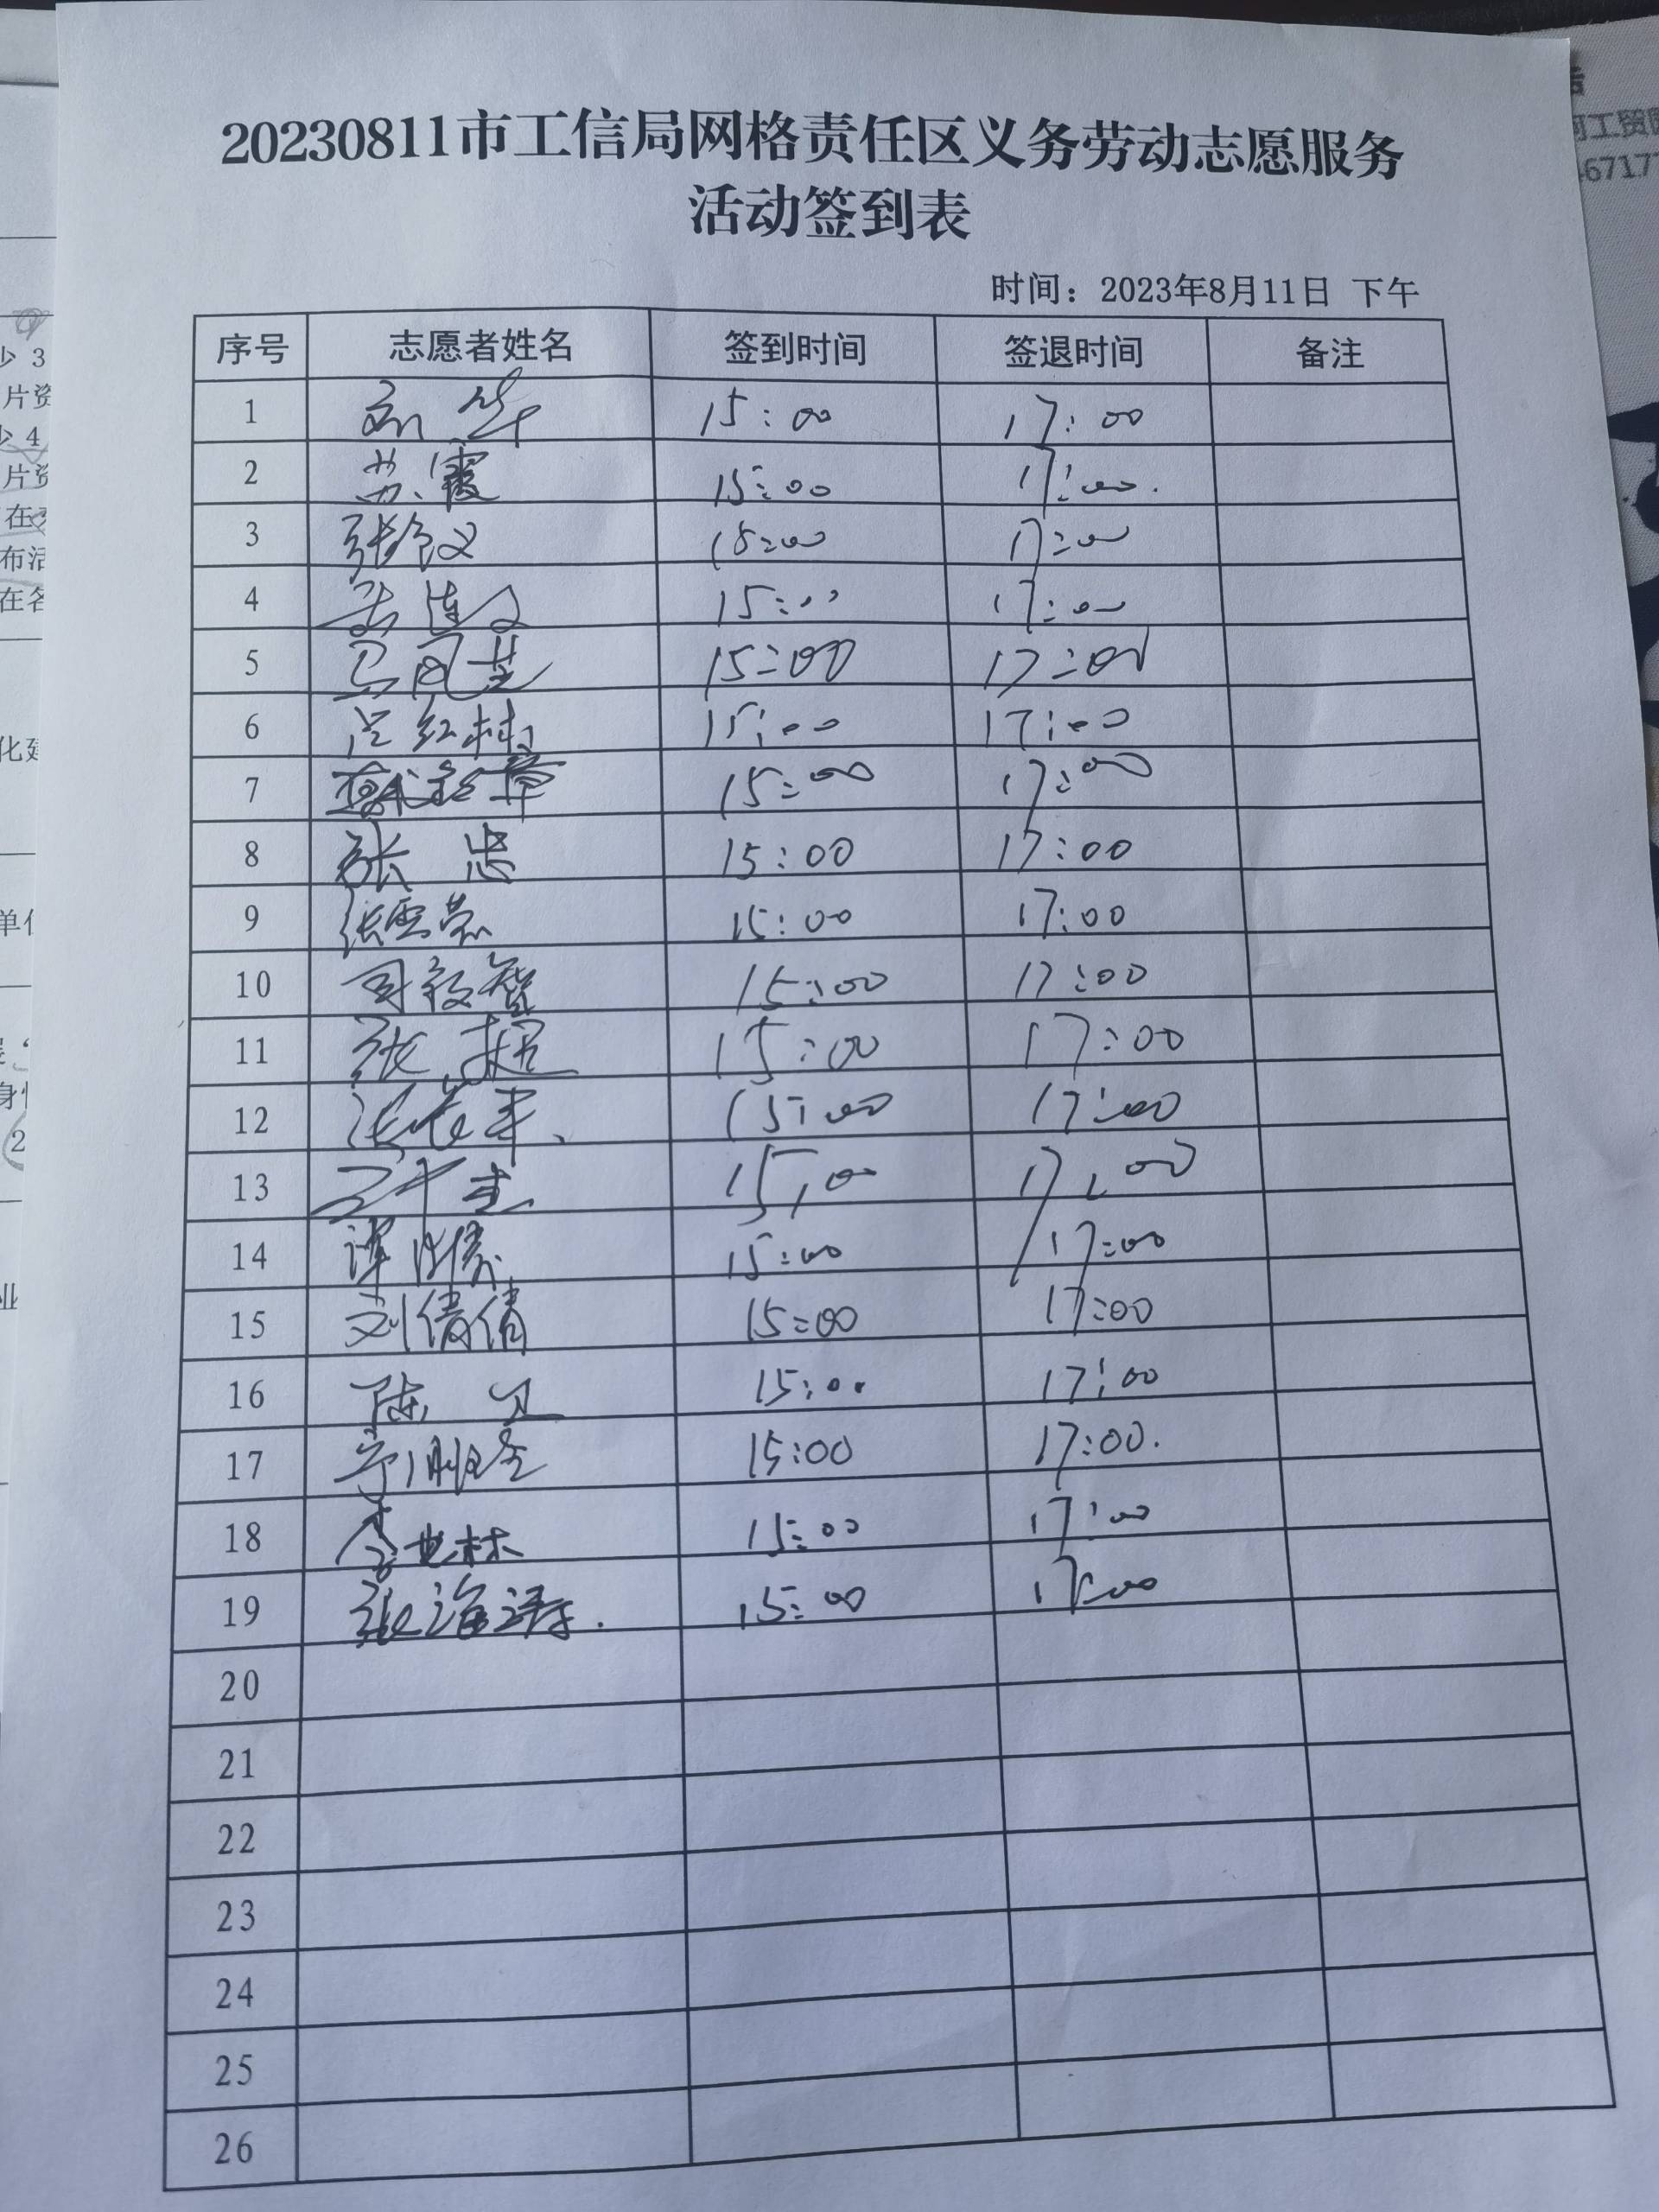 20230811市工信局网格责任区义务劳动志愿服务
活动签到表
时间：2023年8月11日 下午
序号 志愿者姓名 签到时间 签退时间 备注
1 华 15:00 17:00
2 苏霞 15:00 17:00
3 张 15:00 17:00
4 15:00 17:00
5 马凤芝 15:00 17:00
6 红梅 15:00 17:00
7 15:00 17:00
8 张忠 15:00 17:00
9 张雪荣 15:00 17:00
10 15:00 17:00
11 张超 15:00 17:00
12 15:00 17:00
13 15:00 17:00
14 谭 15:00 17:00
15 刘倩倩 15:00 17:00
16 陈 15:00 17:00
17 15:00 17:00
18 李世林 15:00 17:00
19 张海涛 15:00 17:00
20
21
22
23
24
25
26
少 3
片资
少 4
片资
在
布活
在各
化建
单位
2
业
工贸
6717